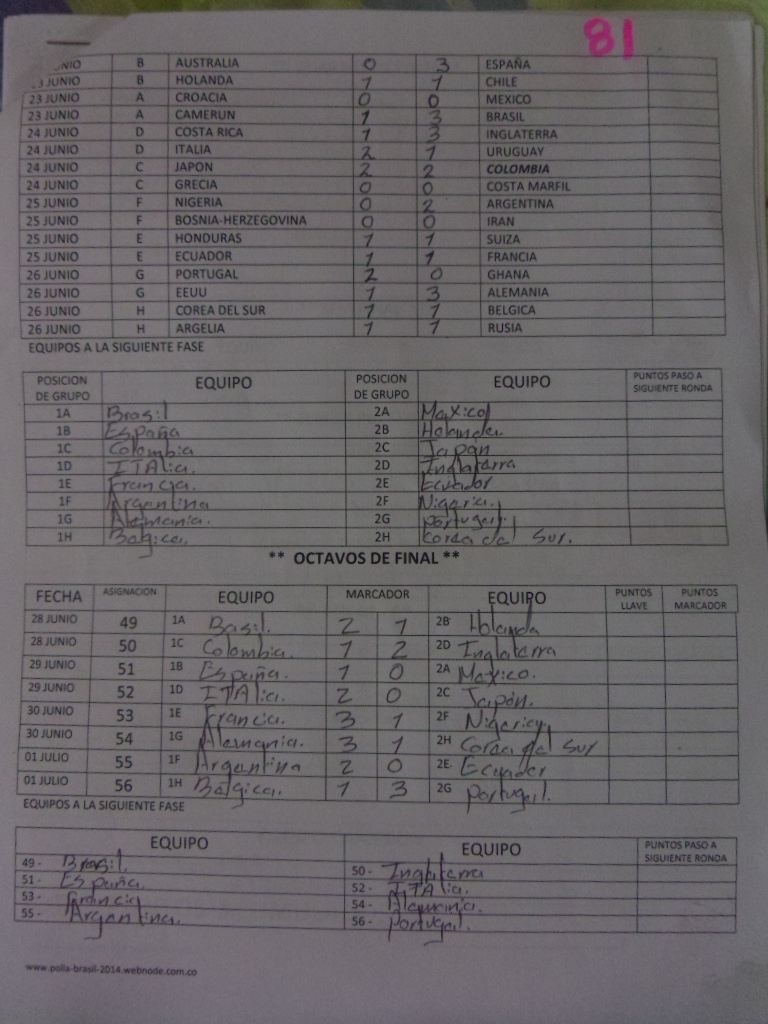 81
JUNIO B AUSTRALIA 0 3 ESPAÑA
23 JUNIO B HOLANDA 1 1 CHILE
23 JUNIO A CROACIA 0 0 MEXICO
23 JUNIO A CAMERUN 1 3 BRASIL
24 JUNIO D COSTA RICA 1 3 INGLATERRA
24 JUNIO D ITALIA 2 1 URUGUAY
24 JUNIO C JAPON 2 2 COLOMBIA
24 JUNIO C GRECIA 0 0 COSTA MARFIL
25 JUNIO F NIGERIA 0 2 ARGENTINA
25 JUNIO F BOSNIA-HERZEGOVINA 0 0 IRAN
25 JUNIO E HONDURAS 1 1 SUIZA
25 JUNIO E ECUADOR 1 1 FRANCIA
26 JUNIO G PORTUGAL 2 0 GHANA
26 JUNIO G EEUU 1 3 ALEMANIA
26 JUNIO H COREA DEL SUR 1 1 BELGICA
26 JUNIO H ARGELIA 1 1 RUSIA
EQUIPOS A LA SIGUIENTE FASE
POSICION DE GRUPO EQUIPO POSICION DE GRUPO EQUIPO PUNTOS PASO A SIGUIENTE RONDA
1A Brasil 2A Maxico
1B España 2B Holanda.
1C Colombia 2C Japón
1D ITAlia. 2D Inglaterra
1E Francia. 2E Ecuador
1F Argantina 2F Nigaria.
1G Alemania. 2G portugal.
1H Bagica. 2H Corea del Sur.
** OCTAVOS DE FINAL **
FECHA ASIGNACION EQUIPO MARCADOR EQUIPO PUNTOS LLAVE PUNTOS MARCADOR
28 JUNIO 49 1A Basil. 2 1 2B Holanda
28 JUNIO 50 1C Colombia. 1 2 2D Inglaterra
29 JUNIO 51 1B España. 1 0 2A Maxico.
29 JUNIO 52 1D ITAlia. 2 0 2C Japón.
30 JUNIO 53 1E Francia. 3 1 2F Nigeria
30 JUNIO 54 1G Alemania. 3 1 2H Corea del Sur
01 JULIO 55 1F Argantina 2 0 2E. Ecuador
01 JULIO 56 1H Balgica. 1 3 2G portugal.
EQUIPOS A LA SIGUIENTE FASE
EQUIPO EQUIPO PUNTOS PASO A SIGUIENTE RONDA
49 - Brasil. 50 - Inglaterra
51 - España. 52 - ITAlia.
53 - Francia 54 - Alemania.
55 - Argantina. 56 - portugal.
www.polla-brasil-2014.webnode.com.co